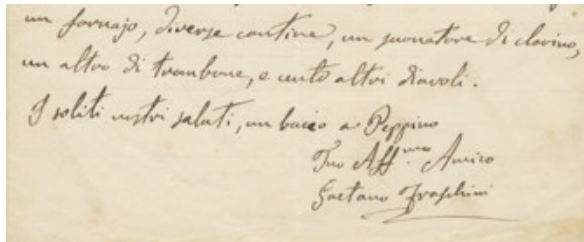 un fornajo, diverse cantine, un suonatore di clarino,
un altro di trombone, e cento altri diavoli.
I soliti nostri saluti, un bacio a Peppino
Tuo Aff.mo Amico
Gaetano Fraschini